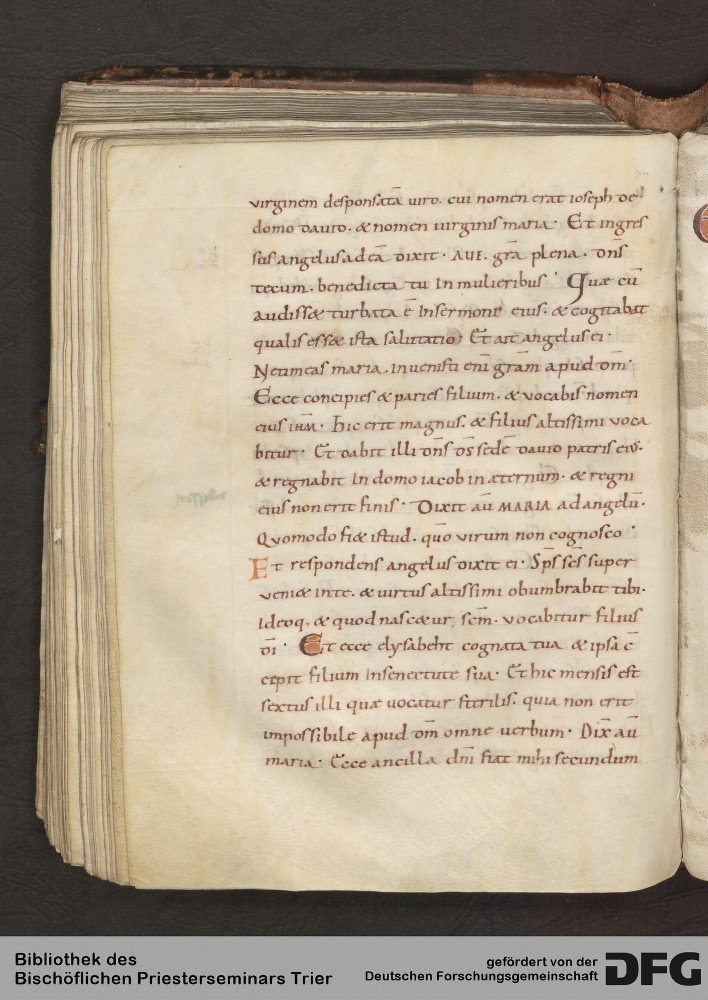 virginem desponsatā uiro. cui nomen erat ioseph de
domo dauid. & nomen uirginis maria. Et ingres
sus angelus ad eā dixit. AUE. gr̄a plena. dn̄s
tecum. benedicta tu in mulieribus. Quæ cū
audiss& turbata ē in sermone eius. & cogitabat
qualis ess& ista salutatio. Et ait angelus ei.
Ne timeas maria. inuenisti eni gr̄am apud dm̄.
Ecce concipies & paries filium. & vocabis nomen
eius ihm̄. hic erit magnus. & filius altissimi voca
bitur. Et dabit illi dn̄s ds̄ sedē dauid patris eius.
& regnabit in domo iacob in æternum. & regni
eius non erit finis. Dixit aū MARIA ad angelū.
Quomodo fi& istud. quō virum non cognosco.
Et respondens angelus dixit ei. Sp̄s sc̄s super
veni& in te. & uirtus altissimi obumbrabit tibi.
Ideoq. & quod nasc&ur sc̄m. vocabitur filius
dī. Et ecce elysabeht cognata tua & ipsa c̄
cepit filium in senectute sua. Et hic mensis est
sextus illi quæ uocatur sterilis. quia non erit
impossibile apud dm̄ omne uerbum. Dix̄ aū
maria. Ecce ancilla dn̄i fiat mihi secundum
Bibliothek des
Bischöflichen Priesterseminars Trier
gefördert von der
Deutschen Forschungsgemeinschaft
DFG